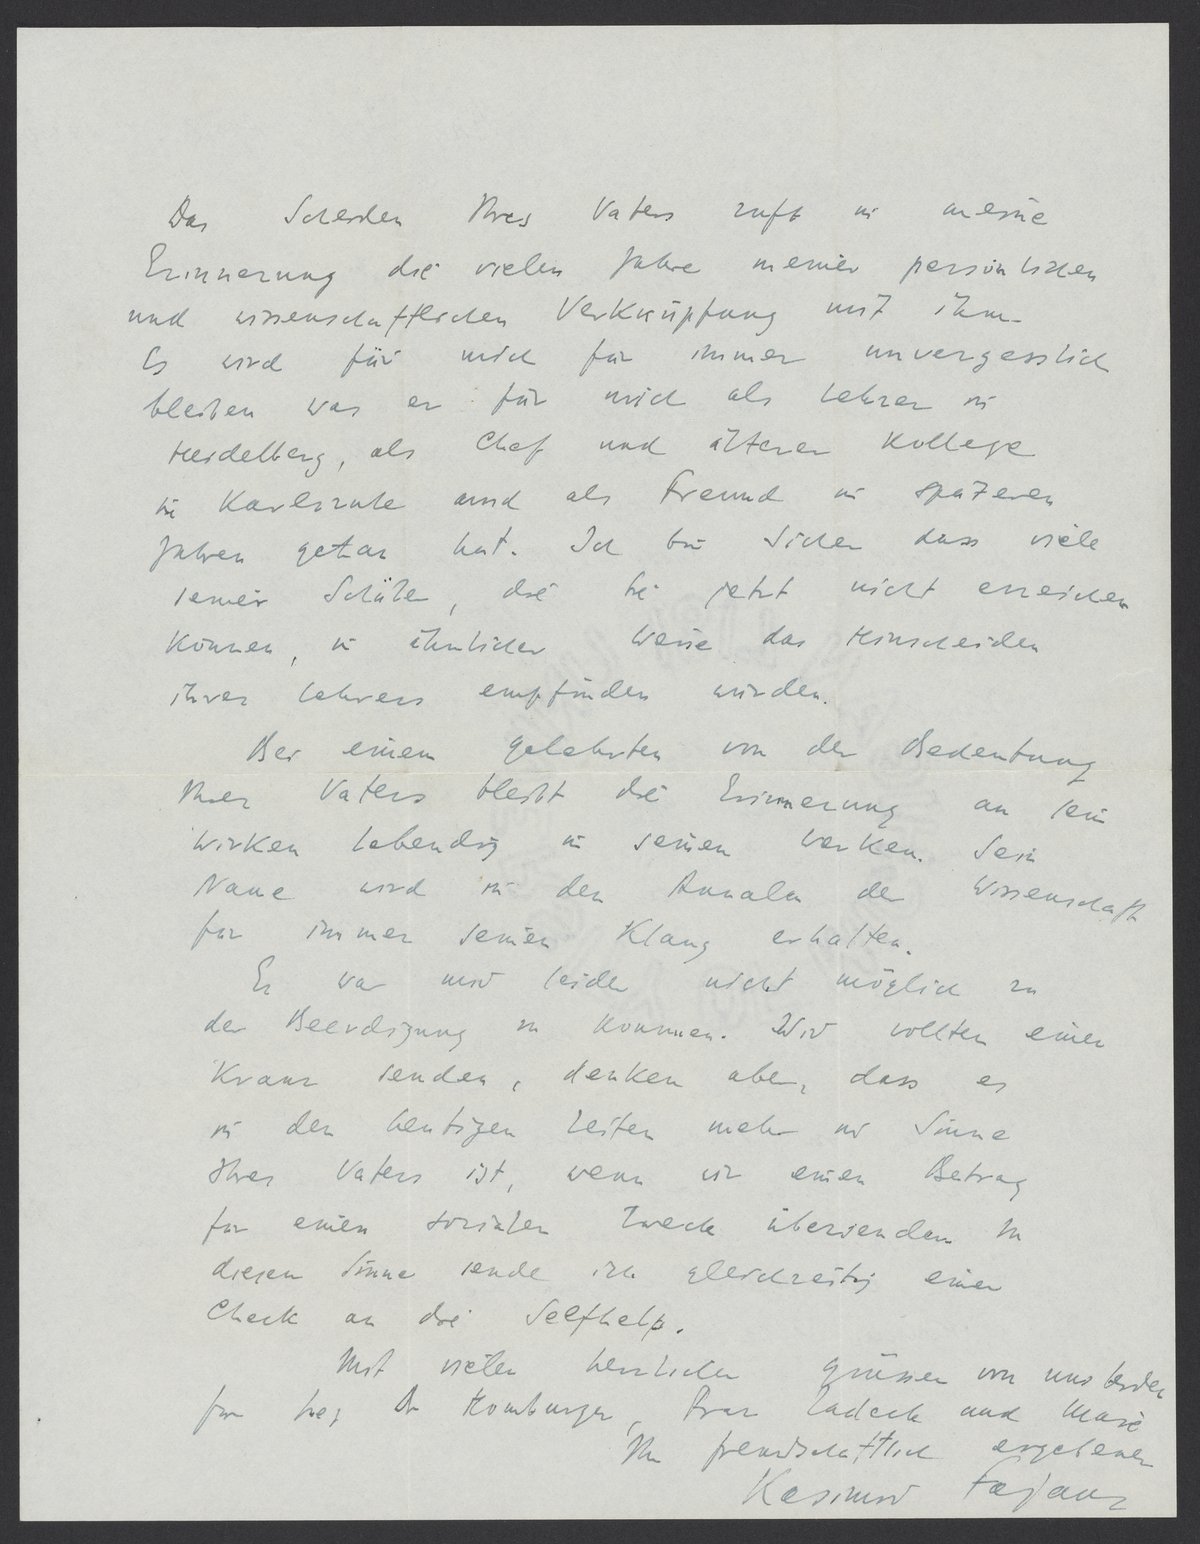 Das Scheiden Ihres Vaters ruft in meine
Erinnerung die vielen Jahre meiner persönlichen
und wissenschaftlichen Verknüpfung mit ihm.
Es wird für mich für immer unvergesslich
bleiben was er für mich als Lehrer in
Heidelberg, als Chef und älterer Kollege
in Karlsruhe und als Freund in späteren
Jahren getan hat. Ich bin sicher dass viele
seiner Schüler, die Sie jetzt nicht erreichen
können, in ähnlicher Weise das Hinscheiden
ihres Lehrers empfinden würden.
Bei einem Gelehrten von der Bedeutung
Ihres Vaters bleibt die Erinnerung an sein
Wirken lebendig in seinen Werken. Sein
Name wird in den Annalen der Wissenschaft
für immer seinen Klang erhalten.
Es war mir leider nicht möglich zu
der Beerdigung zu kommen. Wir wollten einen
Kranz senden, denken aber, dass es
in den heutigen Zeiten mehr im Sinne
Ihres Vaters ist, wenn wir einen Betrag
für einen sozialen Zweck übersenden. In
diesem Sinne sende ich gleichzeitig einen
Check an die Selfhelp.
Mit vielen herzlichen Grüssen von uns beiden
für Sie, Dr Homburger, Frau Zadeck und Marie
Ihr freundschaftlich ergebener
Kasimir Fajans